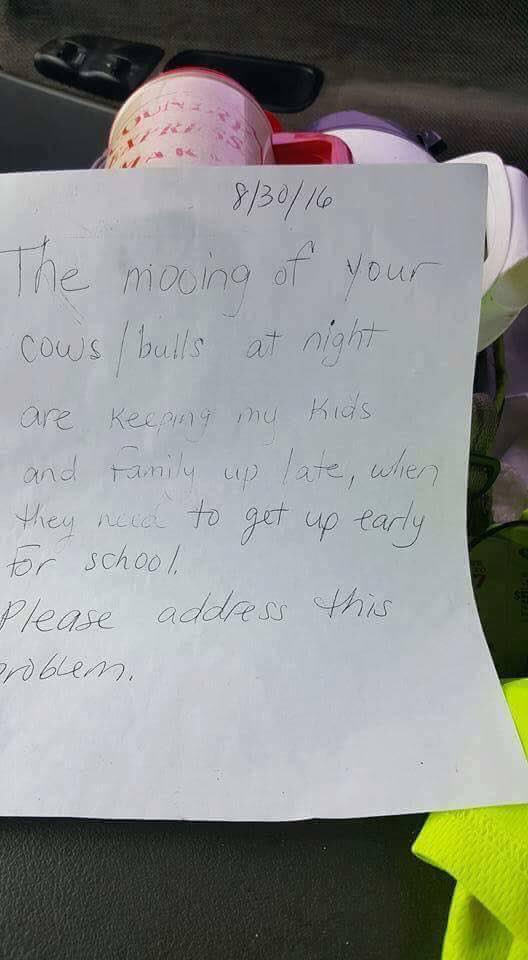 COUNTRY
EXPRESS
8/30/16
The mooing of your
cows/bulls at night
are keeping my kids
and family up late, when
they need to get up early
for school.
Please address this
problem.